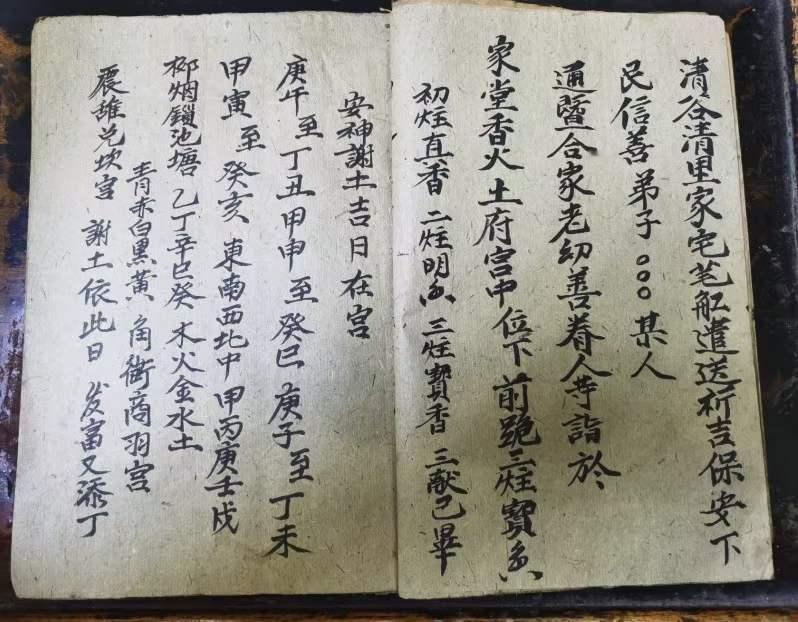 清谷清里家宅舡遣送祈吉保安下
民信善弟子○○○某人
通暨合家老幼善眷人等詣於
家堂香火土府宫中位下前跪三炷寶香
初炷真香 二炷明香 三炷寳香 三献已畢
安神謝土吉日在宫
庚午至丁丑甲申至癸巳 庚子至丁未
甲寅至癸亥 東南西北中 甲丙庚壬戊
烟鎖池塘 乙丁辛巳癸 木火金水土
青赤白黑黄 角商羽宫
震離兑坎宫 謝土依此日 发富又添丁